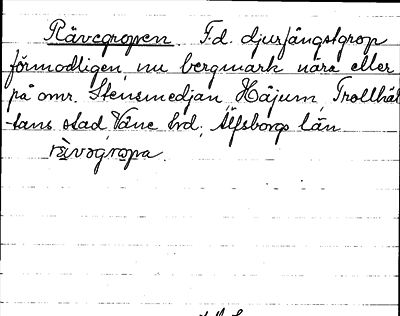 Rävegropen. F.d. djurfångstgrop
förmodligen, nu bergmark nära eller
på omr. Stensmedjan Håjum, Trollhät
-tans stad, Väne hd; Älfsborgs län
rä̀vəgropa.